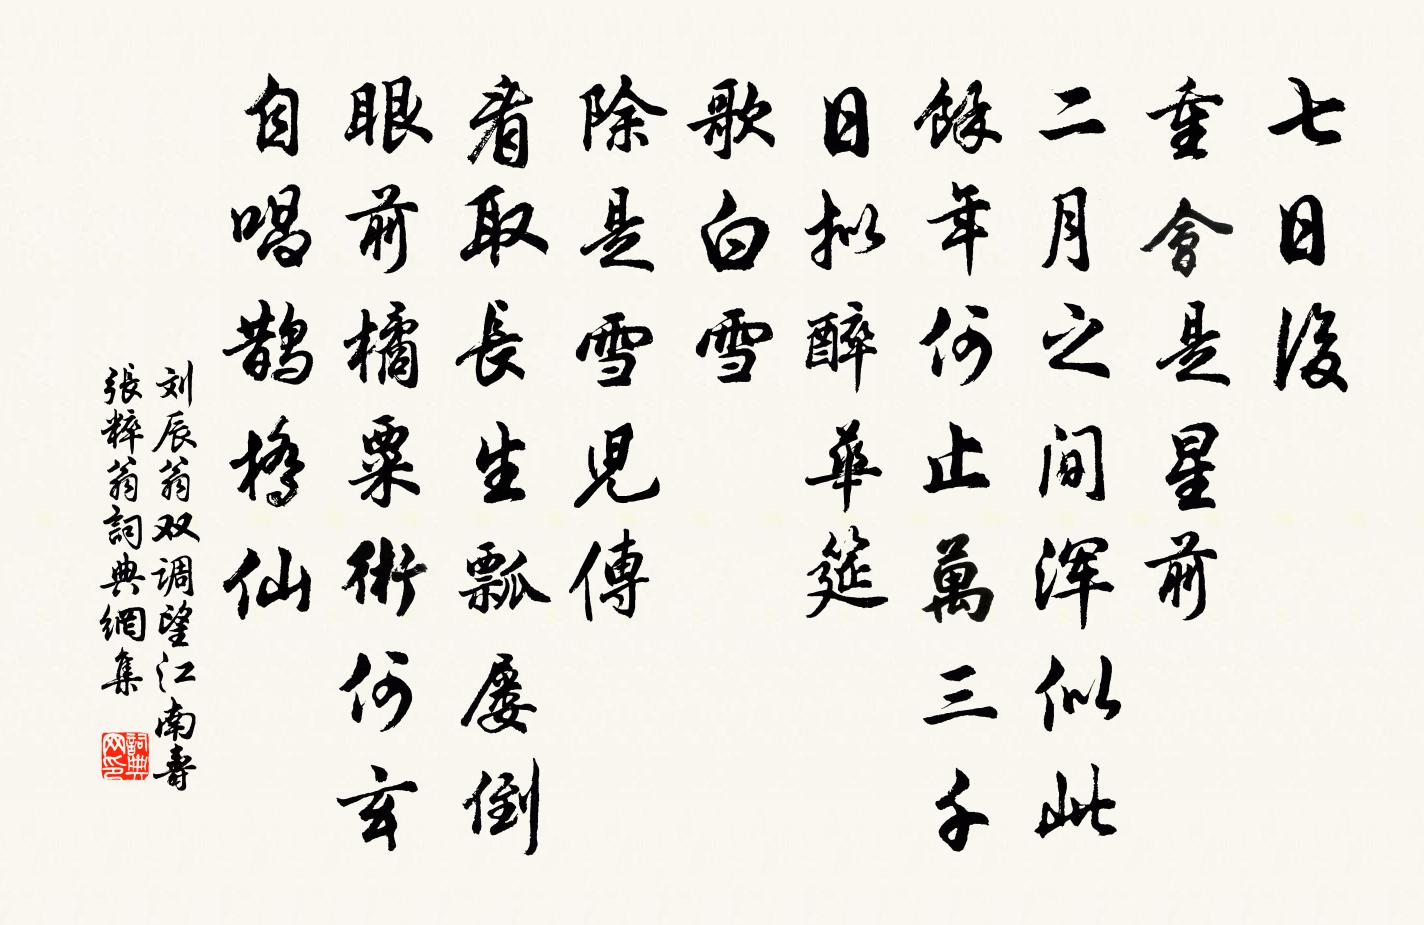 七日後
重會是星前
二月之间浑似此
餘年何止萬三千
日拟醉華筵
歌白雪
除是雪児傳
看取長生瓢屡倒
眼前橘粟術何玄
自唱鹊橋仙
刘辰翁双调望江南壽
張粹翁詞典網集
詞典网印